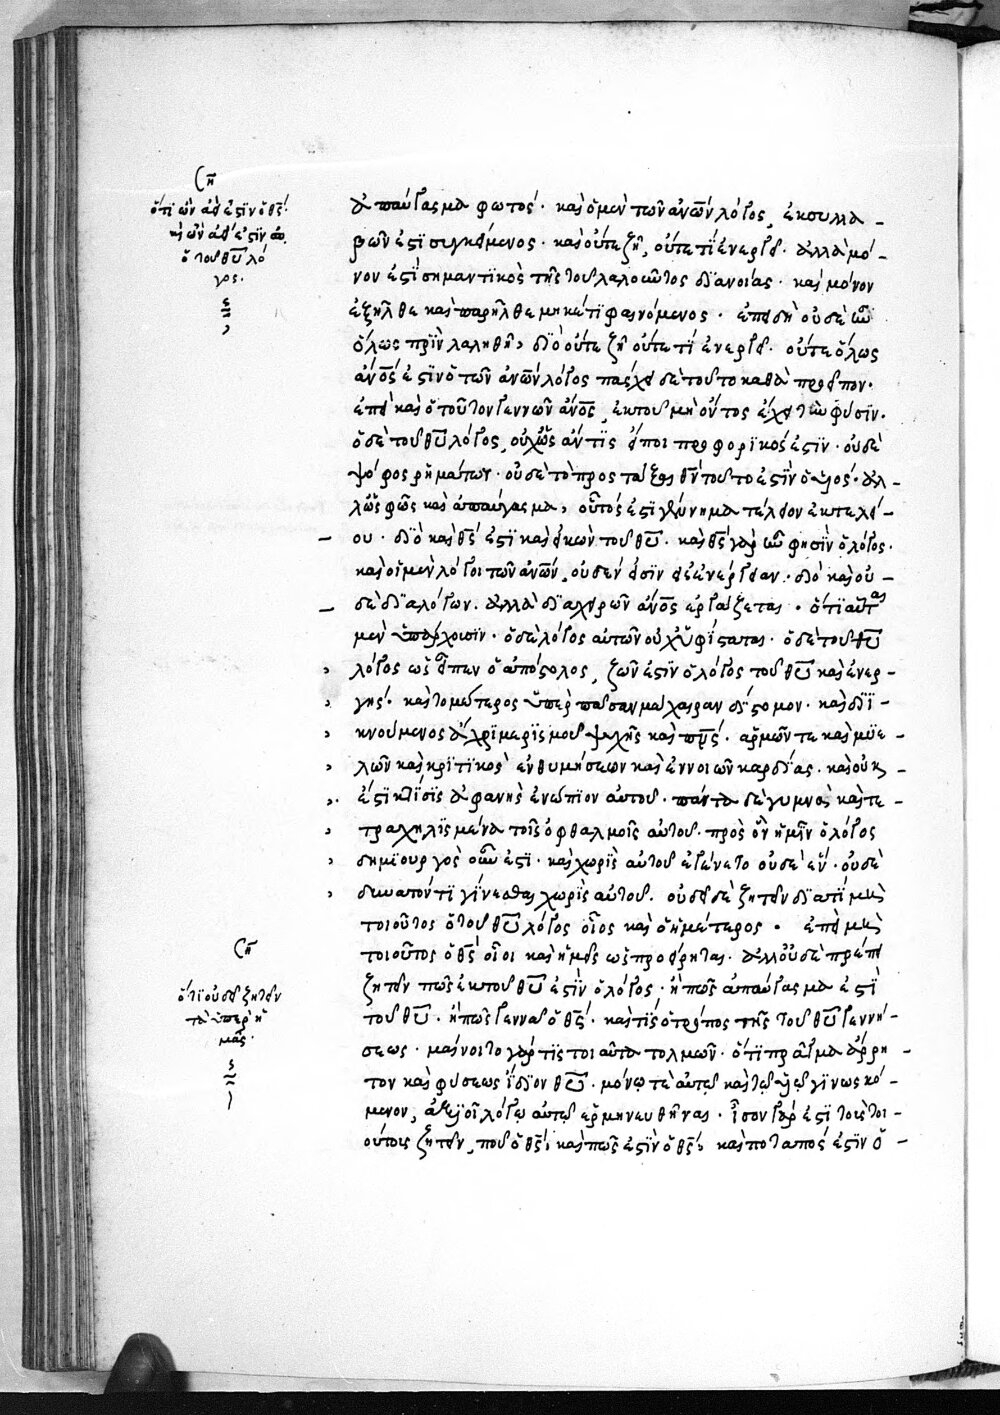 ση
ὅτι ὢν ἀεί ἐστιν ὁ θς·
κ(αὶ) ὢν ἀεί ἐστιν
ὁ τοῦ θυ λό
γος·
ἀπαύγασμα φωτός· καὶ ὁ μὲν τῶν ἀνων λόγος, ἐκ συλλα-
βῶν ἐστι συγκείμενος· καὶ οὔτε ζῆ, οὔτε τὶ ἐνεργεῖ· ἀλλὰ μό-
νον ἐστὶ σημαντικὸς τῆς τοῦ λαλοῦντος διανοίας· καὶ μόνον
ἐξῆλθε καὶ παρῆλθε μηκέτι φαινόμενος· ἐπειδὴ οὐδὲ ἦν
ὅλως πρὶν λαληθῆ, διὸ οὔτε ζῆ οὔτε τὶ ἐνεργεῖ· οὔτε ὅλως
ἀνός ἐστιν ὁ τῶν ἀνων λόγος πάσχει δὲ τοῦτο καθὰ προεῖπον·
ἐπεὶ καὶ ὁ τοῦτον γεννῶν ἀνος, ἐκ τοῦ μὴ ὄντος ἔχει τὴν φύσιν·
ὁ δὲ τοῦ θυ λόγος, οὐχ ὡς ἄν τις εἴποι προφορικός ἐστιν· οὐδὲ
ψόφος ῥημάτων· οὐδὲ τὸ προστάξαι θν τοῦτο ἐστὶν ὁ υἱός· ἀλ-
λ' ὡς φῶς καὶ ἀπαύγασμα, οὕτός ἐστι γέννημα τέλειον ἐκ τελεί-
ου· διὸ καὶ θς ἐστι καὶ εἰκὼν τοῦ θυ· καὶ θς γὰρ ἦν φησὶν ὁ λόγος·
καὶ οἱ μὲν λόγοι τῶν ἀνων, οὐδέν εἰσιν εἰς ἐνέργειαν· διὸ καὶ οὐ-
δὲ διὰ λόγων, ἀλλὰ διὰ χειρῶν ἀνος ἐργάζεται· ὅτι αὗται
μὲν ὑπάρχουσιν· ὁ δὲ λόγος αὐτῶν οὐχ ὑφίσταται· ὁ δὲ τοῦ θυ
λόγος ὡς εἶπεν ὁ ἀπόστολος, ζῶν ἐστιν ὁ λόγος τοῦ θυ καὶ ἐνερ-
γής· καὶ τομώτερος ὑπὲρ πᾶσαν μάχαιραν δίστομον· καὶ διϊ-
κνούμενος ἄχρι μερισμοῦ ψυχῆς καὶ πνς· ἁρμῶν τε καὶ μυε-
λῶν καὶ κριτικὸς ἐνθυμήσεων καὶ ἐννοιῶν καρδίας· καὶ οὐκ
ἔστι κτίσις ἀφανὴς ἐνώπιον αὐτοῦ· πάντα δὲ γυμνὰ καὶ τε-
τραχηλισμένα τοῖς ὀφθαλμοῖς αὐτοῦ· πρὸς ὃν ἡμῖν ὁ λόγος
δημιουργὸς οὖν ἐστι· καὶ χωρὶς αὐτοῦ ἐγένετο οὐδὲ ἕν· οὐδὲ
δυνατόν τι γίνεσθαι χωρὶς αὐτοῦ· οὐ δεῖ δὲ ζητεῖν διατί μὴ
τοιοῦτος ὁ τοῦ θυ λόγος οἷος καὶ ὁ ἡμέτερος· ἐπεὶ μὴ
τοιοῦτος ὁ θς οἷοι καὶ ἡμεῖς ὡς προείρηται· ἀλλ' οὐδὲ πρέπει
ζητεῖν πῶς ἐκ τοῦ θυ ἐστὶν ὁ λόγος· ἢ πῶς ἀπαύγασμά ἐστι
τοῦ θυ· ἢ πῶς γεννᾶ ὁ θς· καὶ τίς ὁ τρόπος τῆς τοῦ θυ γεννή-
σεως· μαίνοιτο γὰρ τίς τοιαῦτα τολμῶν· ὅτι πρᾶγμα ἄρρη-
τον καὶ φύσεως ἴδιον θυ· μόνῳ τὲ αὐτῷ καὶ τῷ υἱῷ γινωσκό-
μενον, ἀξιοῖ λόγῳ αὐτῷ ἑρμηνευθῆναι· ἴσον γάρ ἐστι τοὺς τοι-
ούτοις ζητεῖν, ποῦ ὁ θς, καὶ πῶς ἐστὶν ὁ θς, καὶ ποταπός ἐστιν ὁ-
ση
ὅτι οὐ δεῖ ζητεῖν
τὰ ὑπὲρ ἡ
μᾶς·